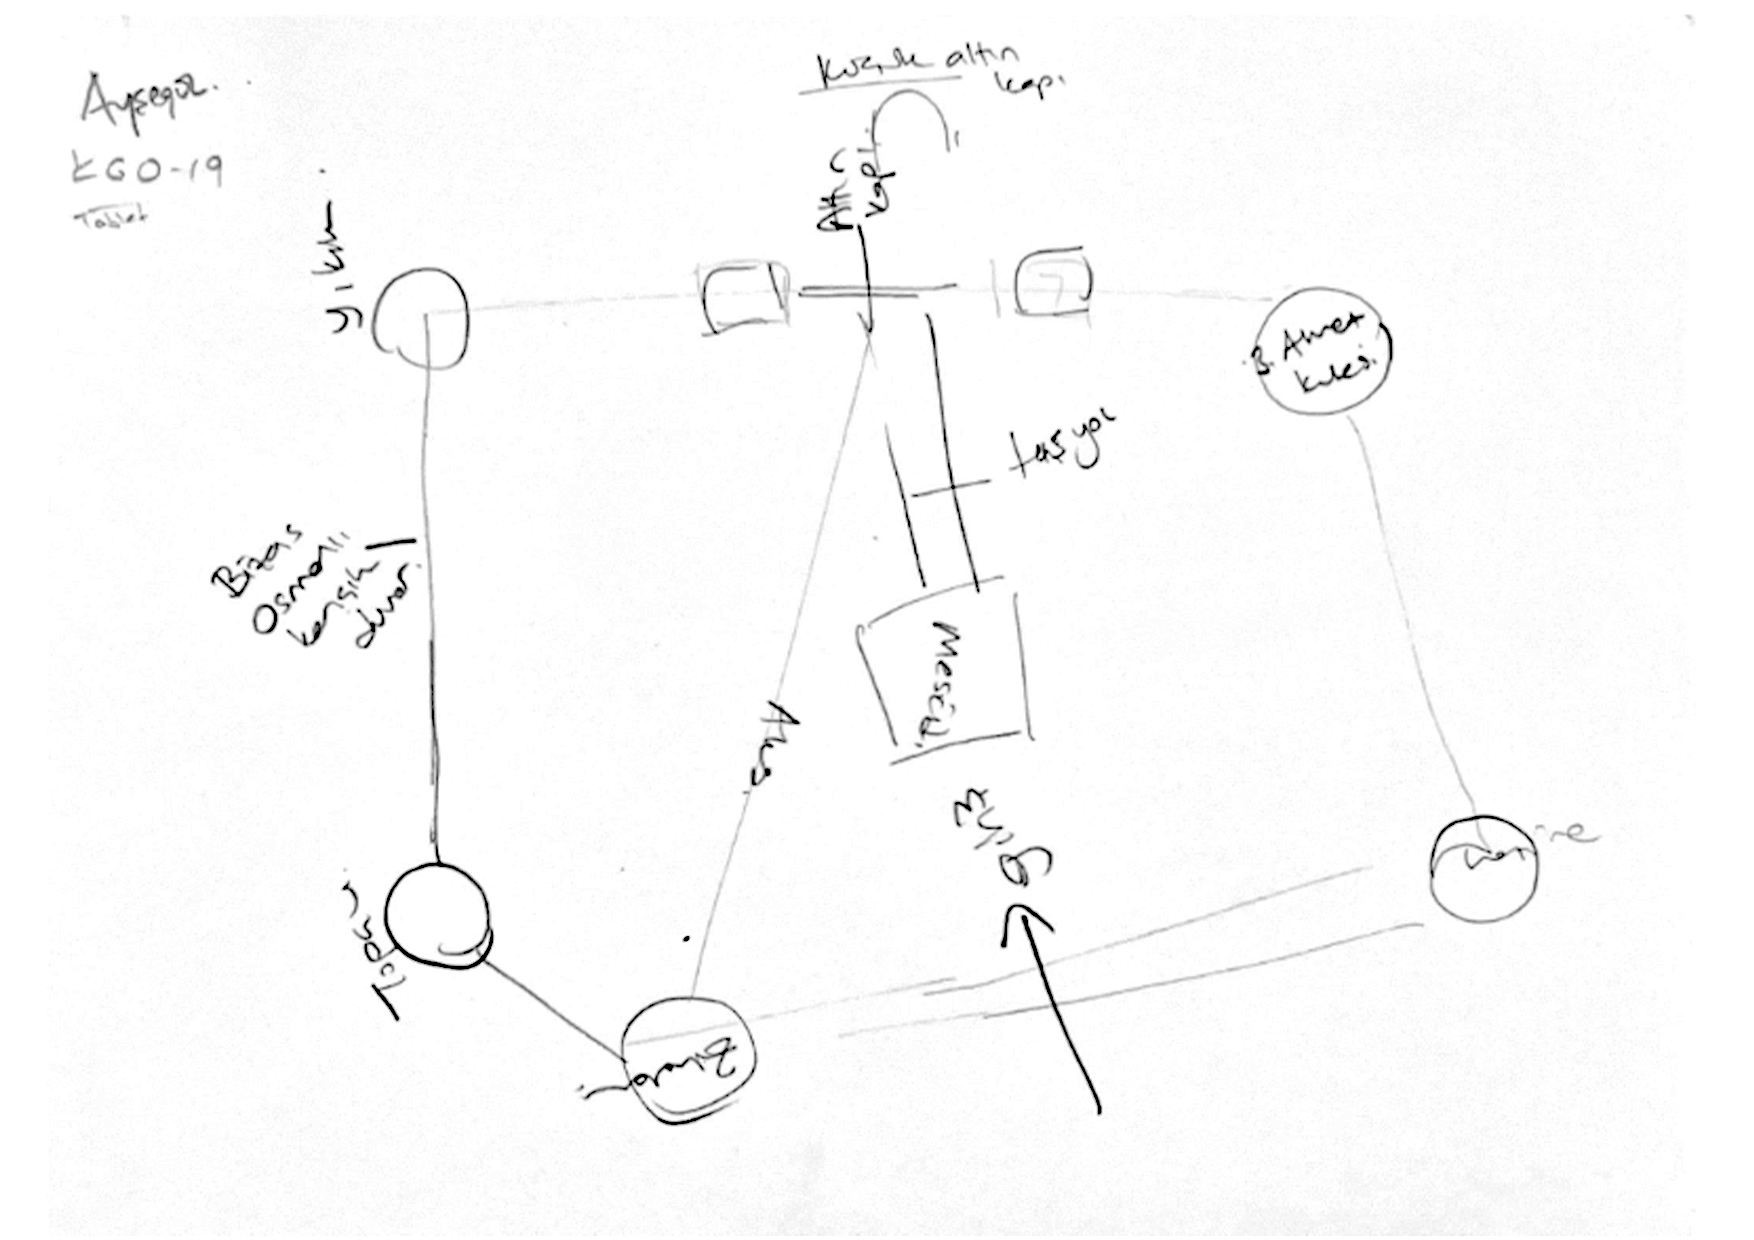 Ayşegül.
KGO-19
Tablet
Küçük altın
kapı
Altın
kapı
yıkık
B. Ahmet
kulesi.
taşyol
Bizans
Osmanlı
karışık
duvar.
Mescid.
Aks
Giriş
Hazine
Topçu
Zindan